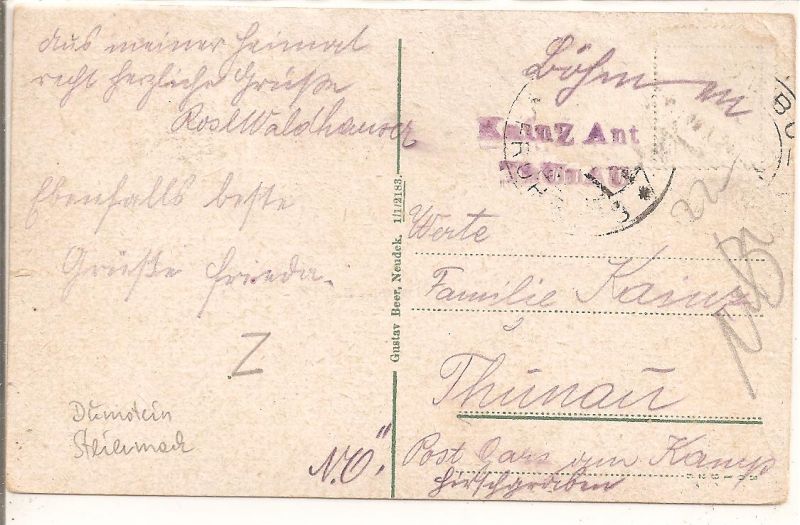 Aus meiner Heimat
recht herzliche Grüße
Rosl Waldhauser
Ebenfalls beste
Grüße Frieda.
Z
Gustav Beer, Neudek. 1/1/2183.
Böhmen
Kainz Ant
Thunau
22
Werte
Familie Kainz
Thunau
Post Gars am Kamp
Hirschgraben
N.Ö."